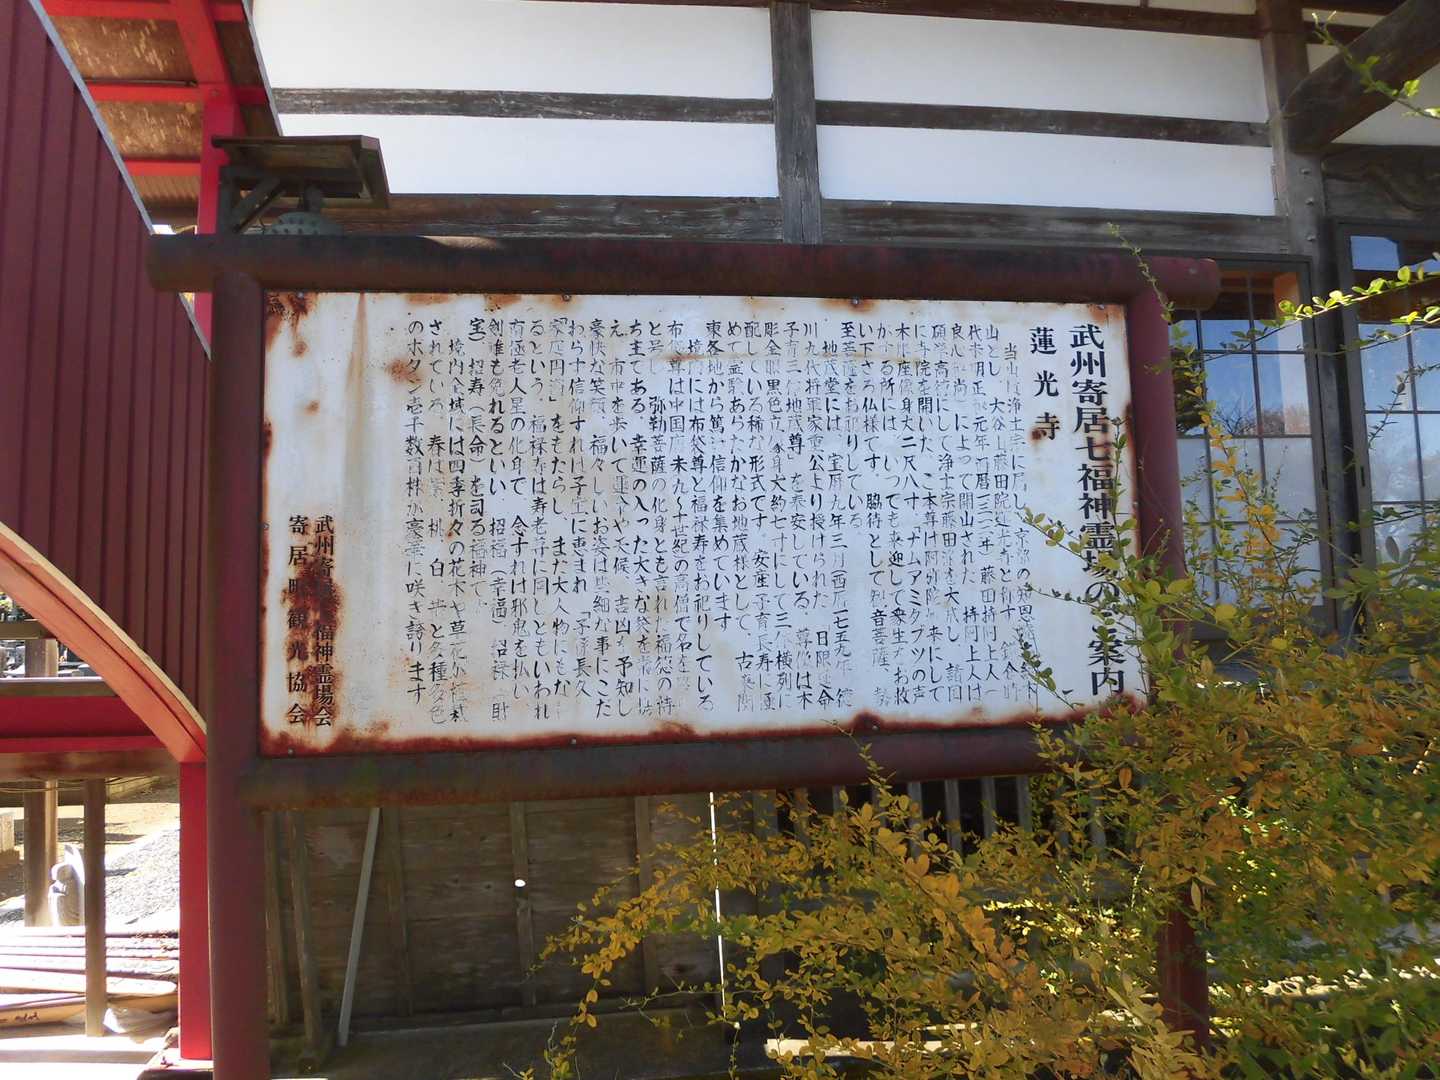 武州寄居七福神霊場のご案内
蓮光寺
当山は浄土宗に属し、京都の知恩
山とし、大谷山藤田院蓮光寺と
代 明正 元年 藤田持阿上人
良心和尚 によって開山された 持阿上人は
碩学高徳にして浄土宗藤田派を大成し 諸国
に寺院を開いた ご本尊は阿弥陀如来にして
木 座像身丈二尺八寸「ナムアミダブツの声
する所には、いつでも来迎して衆生をお救
い下さる仏様です 脇待として観音菩薩、勢
至菩薩をお祀りしている
地蔵堂には、宝暦九年三月 西暦一七五九年 徳
川九代将軍家重公より授けられた 日限延命
子育三体地蔵尊」を奉安している 尊像は木
彫全眼黒色立像身丈約七寸にして三体横列に
配している稀な形式です。安産子育長寿に極
めて霊験あらたかなお地蔵様として、古来関
東各地から篤い信仰を集めています
境内には布袋尊と福禄寿をお祀りしている
布袋尊は中国 末九〜 世紀の高僧で名を
と号し 弥勒菩薩の化身とも言れた福徳の持
ち主である。幸運の入った大きな袋を常に
え、市中を歩いて運不や天候、吉凶を予知し
豪快な笑顔、福々しいお姿は些細な事にこだ
わらず信仰すれば子宝に恵まれ「子孫長久
家庭円満」をもたらし、また大人物にもな
るという。福禄寿は寿老尊に同じともいわれ
南極老人星の化身で、念ずれば邪鬼を払い
剣難も免れるといい 招福（幸福）招禄（財
宝）招寿（長命）を司る福神です
境内全域には四季折々の花木や草花が
されている。春は 桃、白 と多種多色
のボタン壱千数百株が豪華に咲き誇ります
武州寄居七福神霊場会
寄居町観光協会